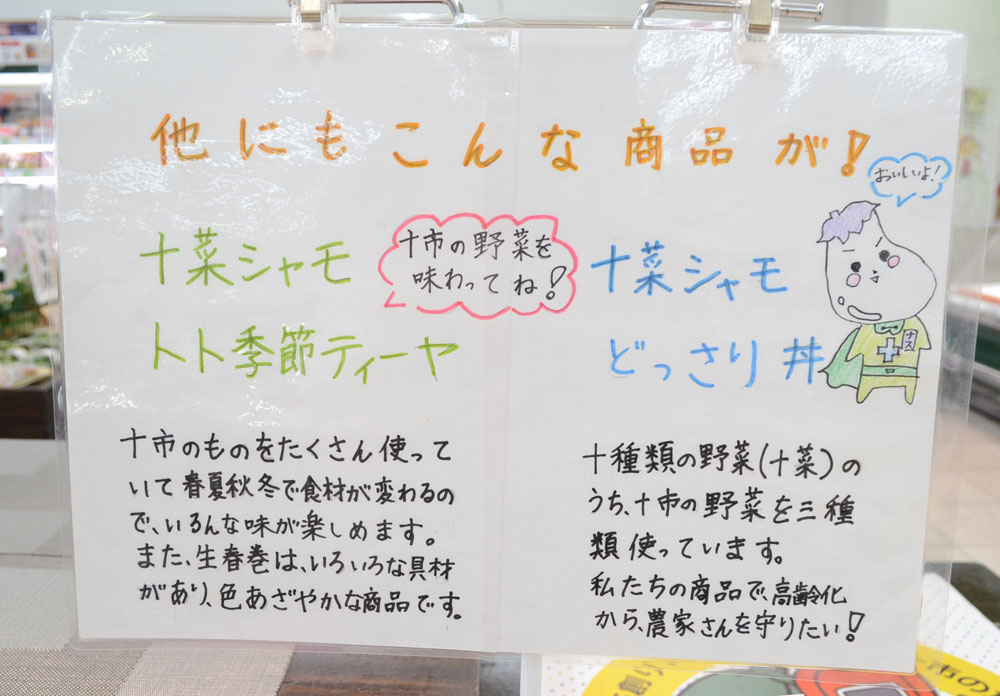 他にもこんな商品が!
おいしいよ!
十菜シャモ
トト季節ティーヤ
十市の野菜を
味わってね!
十菜シャモ
どっさり丼
ナス
十市のものをたくさん使って
いて春夏秋冬で食材が変わるの
で、いろんな味が楽しめます。
また、生春巻は、いろいろな具材
があり、色あざやかな商品です。
十種類の野菜(十菜)の
うち、十市の野菜を三種
類使っています。
私たちの商品で、高齢化
から、農家さんを守りたい!
市の